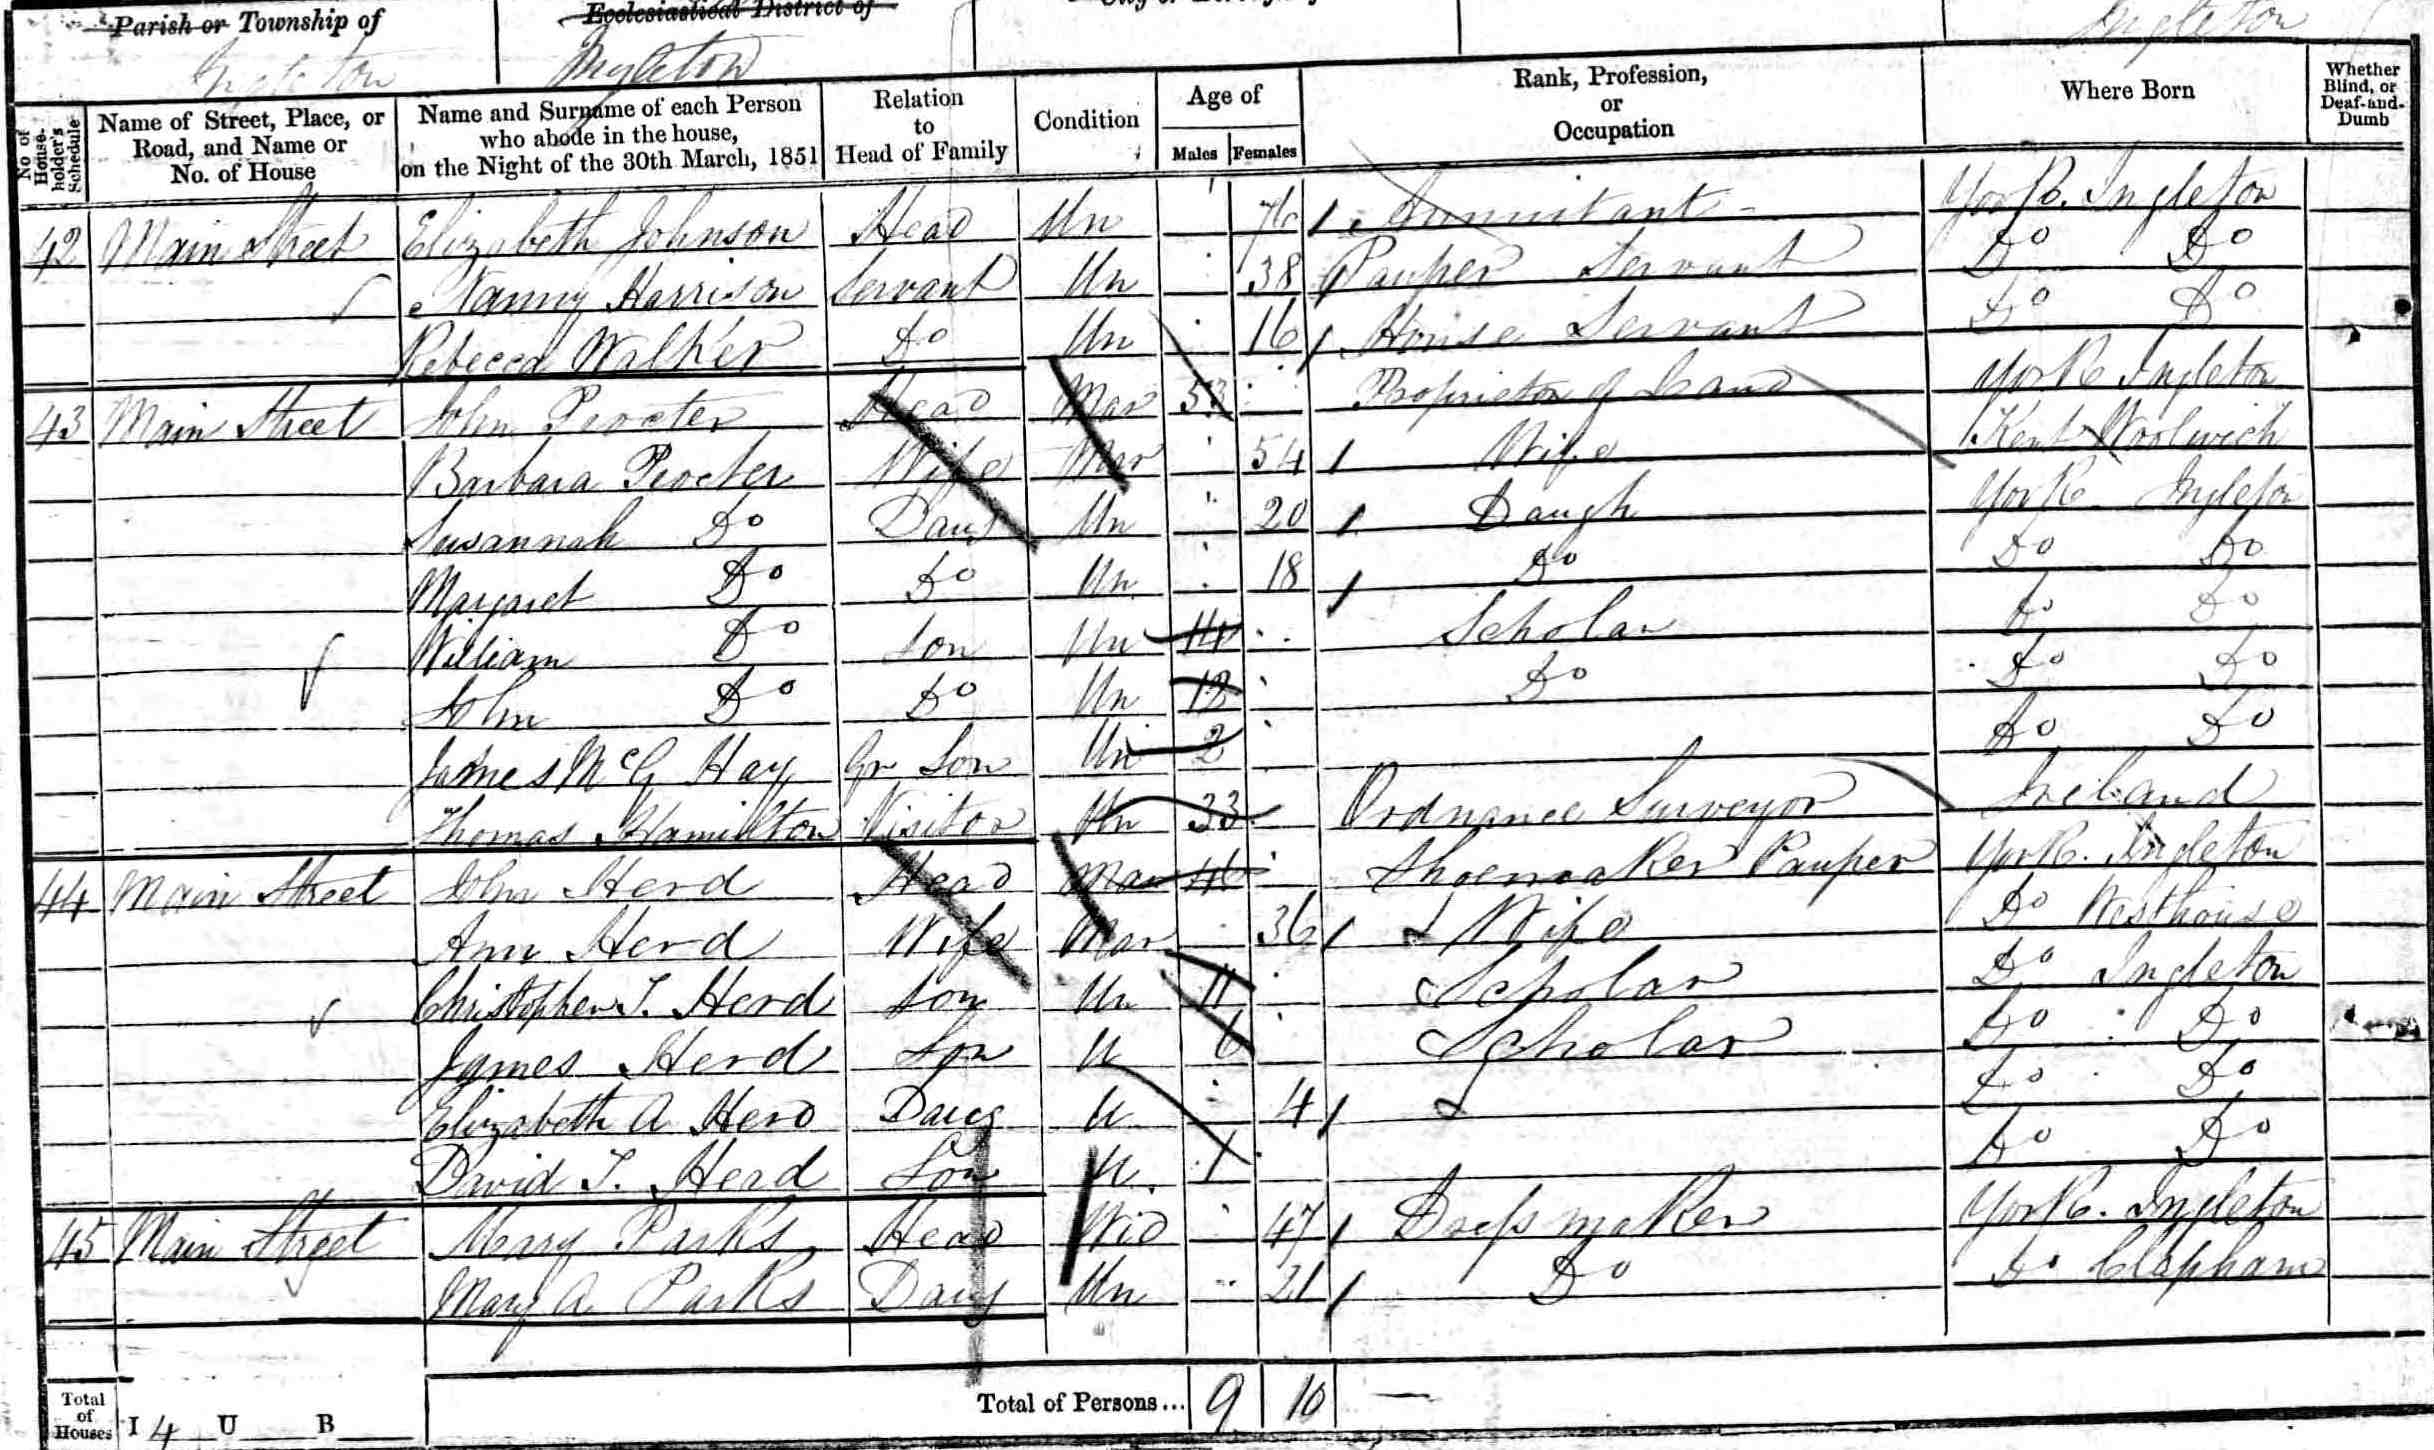 Parish or Township of
Ecclesiastical District of
Ingleton
Ingleton
Ingleton
No of House-holder's Schedule
Name of Street, Place, or Road, and Name or No. of House
Name and Surname of each Person who abode in the house, on the Night of the 30th March, 1851
Relation to Head of Family
Condition
Age of
Males Females
Rank, Profession, or Occupation
Where Born
Whether Blind, or Deaf-and-Dumb
42 Main Street Elizabeth Johnson Head Un 76 Annuitant York. Ingleton
Nanny Harrison Servant Un 38 Pauper Servant Do Do
Rebecca Walker Do Un 16 House Servant Do Do
43 Main Street John Procter Head Mar 53 Proprietor of Land York Ingleton
Barbara Procter Wife Mar 54 Wife Kent Woolwich
Susannah Do Daug Un 20 Daugh York Ingleton
Margaret Do Do Un 18 Do Do Do
William Do Son Un 14 Scholar Do Do
John Do Do Un 12 Do Do Do
James McG Hay Gr Son Un 2 Do Do
Thomas Hamilton Visitor Un 33 Ordnance Surveyor Ireland
44 Main Street John Herd Head Mar 46 Shoemaker Pauper York. Ingleton
Ann Herd Wife Mar 36 Wife Do Westhouse
Christopher T. Herd Son Un 11 Scholar Do Ingleton
James Herd Son U 6 Scholar Do Do
Elizabeth A Herd Daug U 4 Do Do
David T. Herd Son U 1 Do Do
45 Main Street Mary Parks Head Wid 47 Dressmaker York. Ingleton
Mary A Parks Daug Un 21 Do Do Clapham
Total of Houses I 4 U B Total of Persons... 9 10